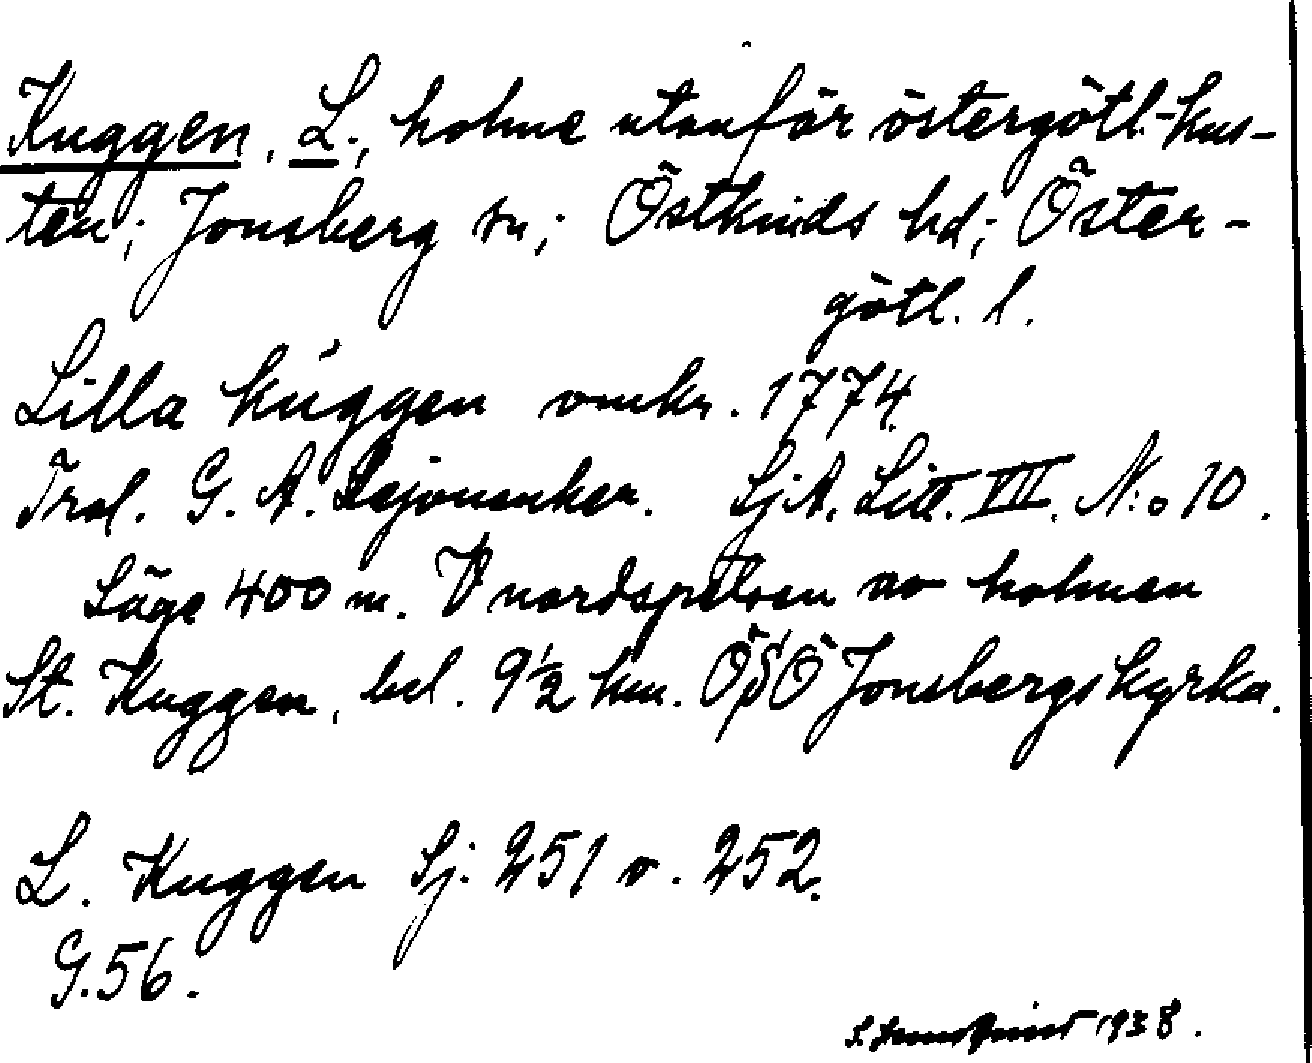 Kuggen, L., holme utanför östergötl. kus-
ten; Jonsberg sn; Östkinds hd; Öster-
götl. l.
Lilla Kuggen omkr. 1774.
Trol. G. A. Lejonanker. SjA. Litt. VII. N:o 10.
Läge 400 m. V nordspetsen av holmen
St. Kuggen, bel. 9½ km. ÖSÖ Jonsbergs kyrka.
L. Kuggen Sj. 251 o. 252.
G.56.
1938.